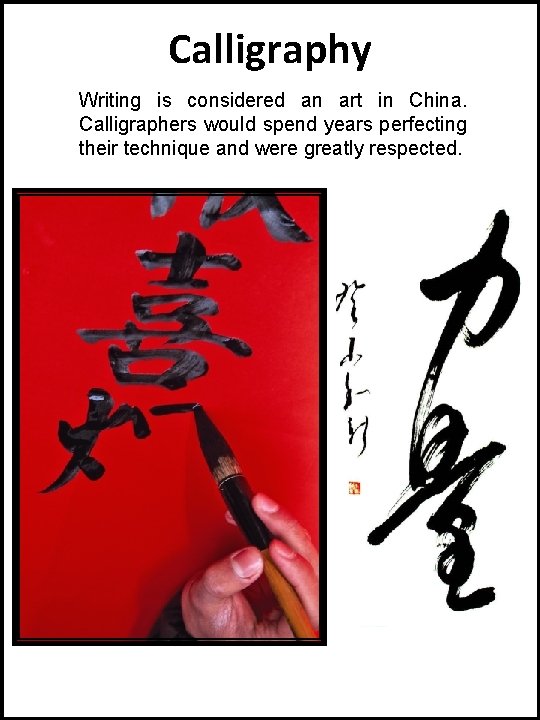 Calligraphy
Writing is considered an art in China.
Calligraphers would spend years perfecting
their technique and were greatly respected.
喜
力量